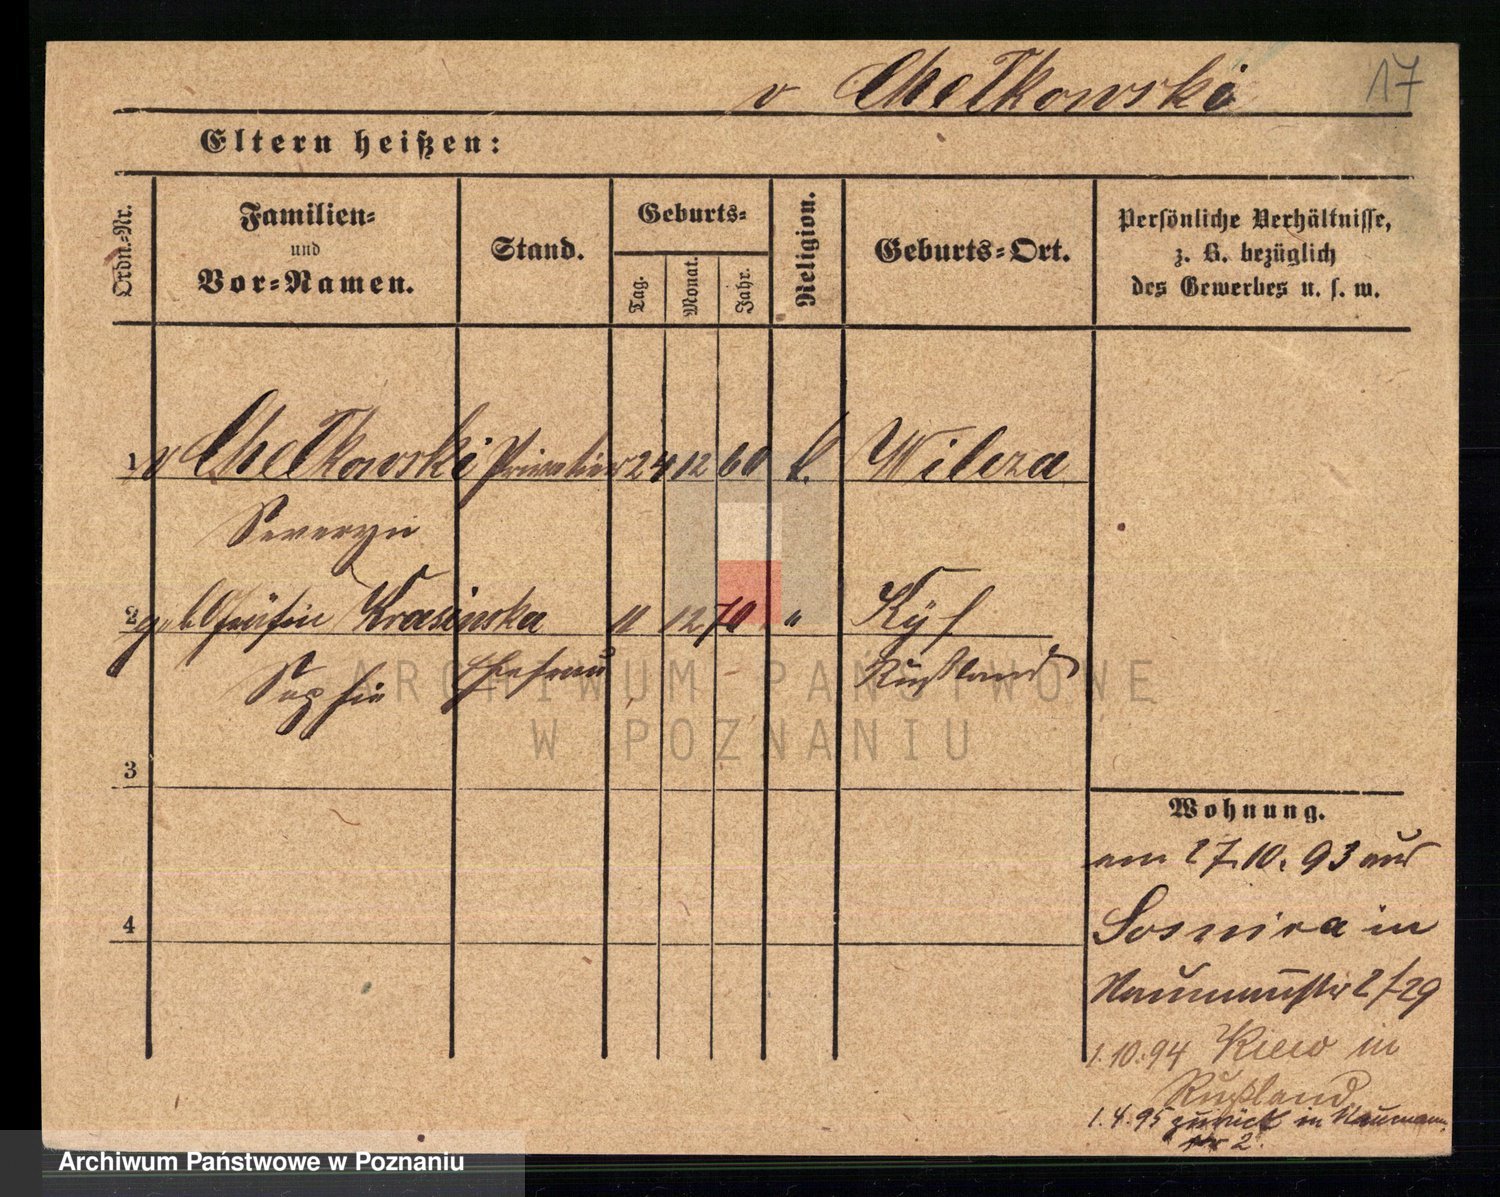 v Chelkowski 17
Eltern heißen:
Ordn.-Nr.
Familien-
und
Vor-Namen.
Stand.
Geburts-
Tag.
Monat.
Jahr.
Religion.
Geburts-Ort.
Persönliche Verhältnisse,
z. B. bezüglich
des Gewerbes u. s. w.
1 v Chelkowski Privatier 24 12 60 k. Wilcza
Severyn
2 geb Gräfin Krasinska 11 12 70 " Kijf
Sophie Ehefrau Rußland
3
4
Wohnung.
am 27.10.93 aus
in
Naumannstr 2/29
1.10.94 Kiew in
Rußland
1.4.95 zurück in Naumann
str 2.
ARCHIWUM PAŃSTWOWE
W POZNANIU
Archiwum Państwowe w Poznaniu